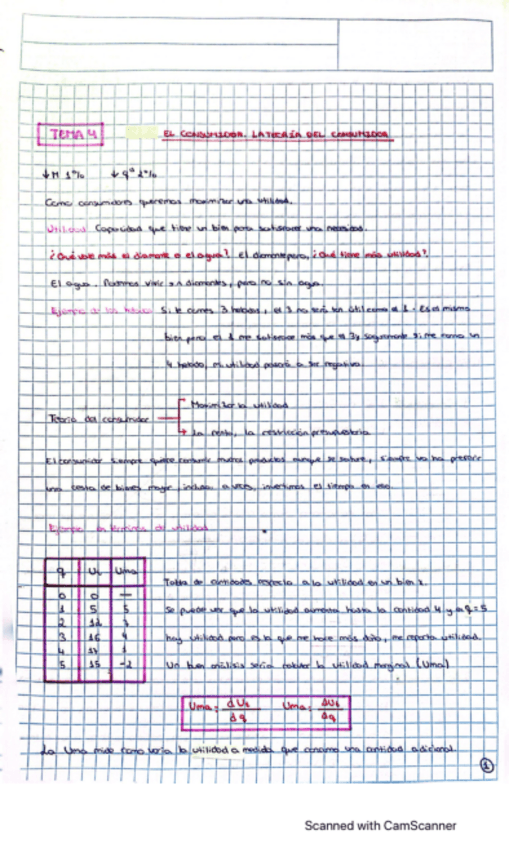 TEMA 4 EL CONSUMIDOR. LA TEORÍA DEL CONSUMIDOR
↓M 1% ↓qº 2%
Como consumidores queremos maximizar una utilidad.
Utilidad Capacidad que tiene un bien para satisfacer una necesidad.
¿Qué vale más el diamante o el agua? El diamante pero, ¿Qué tiene más utilidad?
El agua. Podemos vivir sin diamantes, pero no sin agua.
Ejemplo de los helados Si te comes 3 helados, el 3 no será tan útil como el 1. Es el mismo
bien pero el 1 me satisface más que el 3 y seguramente si me como un
4 helado, mi utilidad pasará a ser negativa.
Maximizar la utilidad
Teoría del consumidor
La renta, la restricción presupuestaria
El consumidor siempre quiere consumir muchos productos aunque se sature, siempre va ha preferir
una cesta de bienes mayor, incluso a veces, invertimos el tiempo en eso.
Ejemplo en términos de utilidad
q Ut Uma
0 0 —
1 5 5
2 12 7
3 16 4
4 17 1
5 15 -2
Tabla de cantidades respecto a la utilidad en un bien x.
Se puede ver que la utilidad aumenta hasta la cantidad 4 y en q=5
hay utilidad pero es la que me hace más daño, me reporta utilidad.
Un buen análisis sería hablar la utilidad marginal (Uma)
Uma = dUt / dq Uma = ΔUt / Δq
La Uma mide como varía la utilidad a medida que consumo una cantidad adicional.
1
Scanned with CamScanner